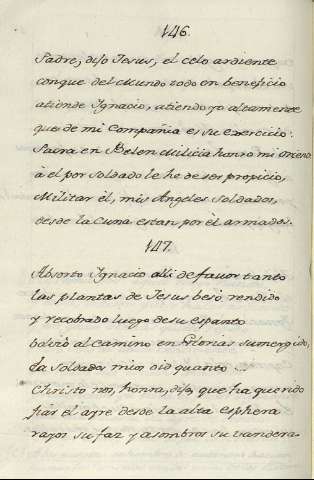 146.
Padre, dijo Jesus, el celo ardiente
conque del Mundo todo en beneficio
atiende Ignacio, atiendo yo altamente
que de mi Compañia es su exercicio:
Sacra en Belen Milicia honró mi oriente
à el por Soldado le he de ser propicio,
Militar él, mis Angeles Soldados,
desde la Cuna estan por èl armados.
147.
Absorto Ignacio alli de favor tanto
las plantas de Jesus besó rendido
y recobrado luego de su espanto
bolvió al camino en Glorias sumergido,
Ea Soldados mios oid quanto
Christo nos honra, dijo, que ha querido
fiar el ayre desde la alta esphera
rayos su faz y asombros su vandera.